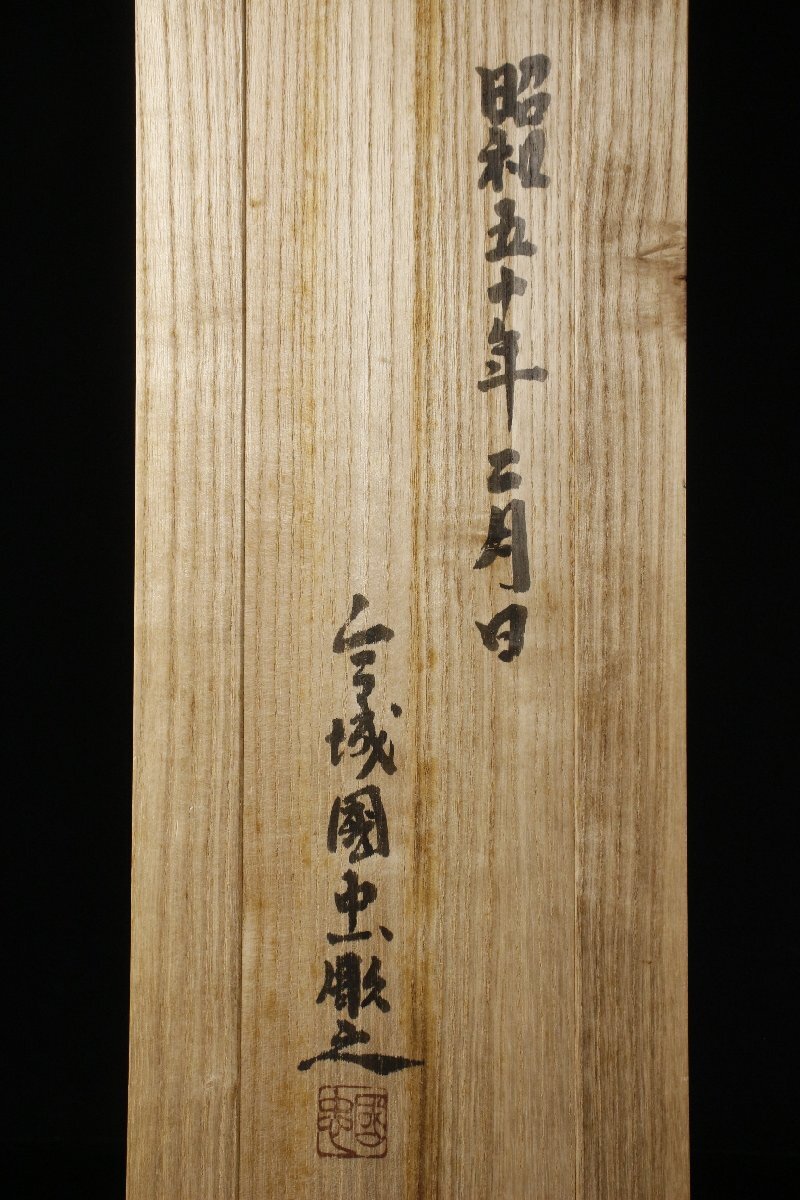 昭和五十年二月日
今城國忠彫之
國忠